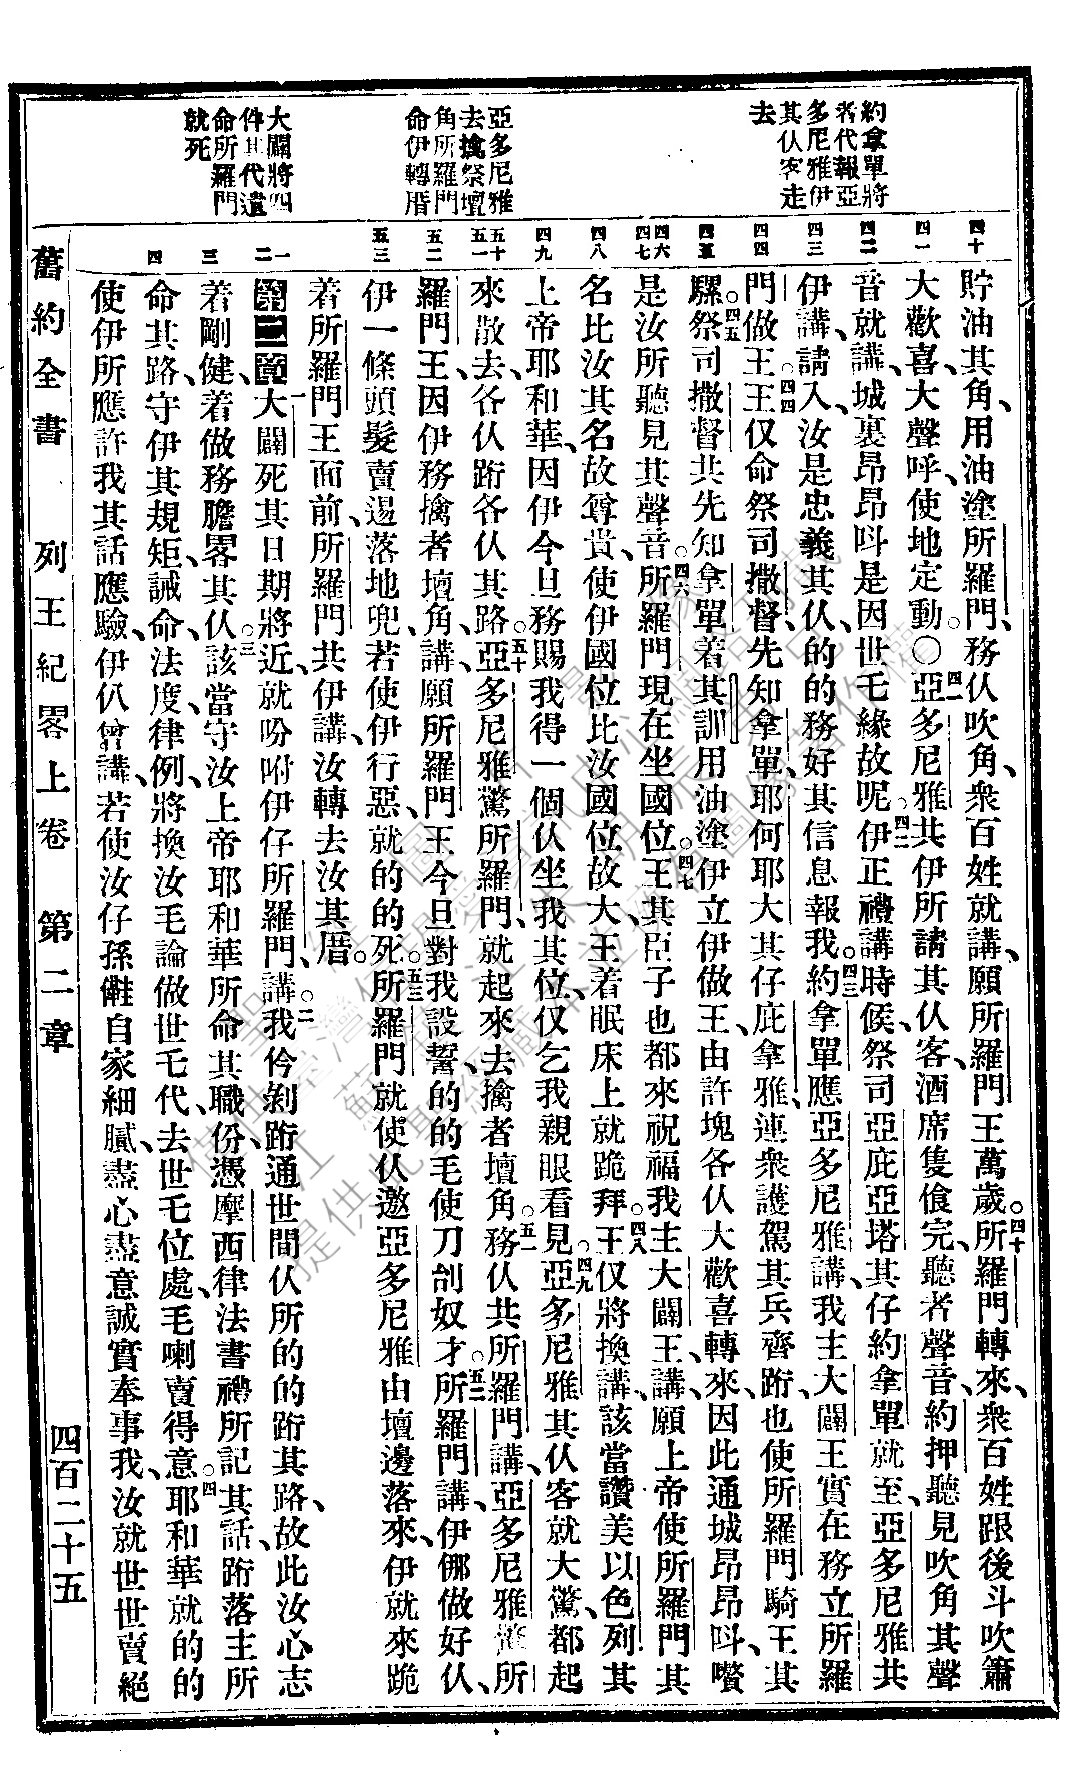 約拿單將
者代報亞
多尼雅伊
其仈客走
去
亞多尼雅
去擒祭壇
角所羅門
命伊轉厝
大闢將四
件其代遺
命所羅門
就死
四十
四一
四二
四三
四四
四五
四六
四七
四八
四九
五十
五一
五二
五三
一
二
三
四
貯油其角、用油塗所羅門、務仈吹角、衆百姓就講、願所羅門王萬歲。四十所羅門轉來、衆百姓跟後斗吹簫
大歡喜、大聲呼、使地定動〇四一亞多尼雅共伊所請其仈客、酒席隻飡完、聽着聲音、約押聽見吹角其聲
音就講、城裏昂昂呌是因世乇緣故呢。四二伊正禮講時候、祭司亞庇亞塔其仔約拿單就至、亞多尼雅共
伊講、請入、汝是忠義其仈、的的務好其信息報我。四三約拿單應亞多尼雅講、我主大闢王實在務立所羅
門做王。四四王仅命祭司撒督、先知拿單、耶何耶大其仔庇拿雅、連衆護駕其兵齊跖、也使所羅門騎王其
騾。四五祭司撒督共先知拿單着其訓用油塗伊立伊做王、由許塊各仈大歡喜轉來、因此通城昂昂呌、嚽
是汝所聽見其聲音。四六所羅門現在坐國位。四七王其臣子也都來祝福我主大闢王、講、願上帝使所羅門其
名比汝其名故尊貴、使伊國位比汝國位故大、王着眠床上就跪拜。四八王仅將換講、該當讚美以色列其
上帝耶和華、因伊今旦務賜我得一個仈坐我其位、仅乞我親眼看見。四九亞多尼雅其仈客就大驚、都起
來散去、各仈跖各仈其路。五十亞多尼雅驚所羅門、就起來去擒者壇角。五一務仈共所羅門講、亞多尼雅懽所
羅門王、因伊務擒者壇角、講、願所羅門王今旦對我設誓的的毛使刀刣奴才。五二所羅門講、伊倻做好仈、
伊一條頭髮賣逿落地兜、若使伊行惡、就的的死。五三所羅門就使仈邀亞多尼雅由壇邊落來、伊就來跪
着所羅門王面前、所羅門共伊講、汝轉去汝其厝。
第二章 一大闢死其日期將近、就吩咐伊仔所羅門、講。二我伶剝跖通世間仈所的的跖其路、故此汝心志
着剛健、着做務膽畧其仈。三該當守汝上帝耶和華所命其職份、憑摩西律法書禮所記其話、跖落主所
命其路、守伊其規矩、誡命、法度、律例、將換汝毛論做世乇代、去世乇位處、毛喇賣得意。四耶和華就的的
使伊所應許我其話應驗、伊仈曾講、若使汝仔孫傕自家細膩、盡心盡意誠實奉事我、汝就世世賣絕
舊約全書　列王紀畧上卷　第二章　四百二十五